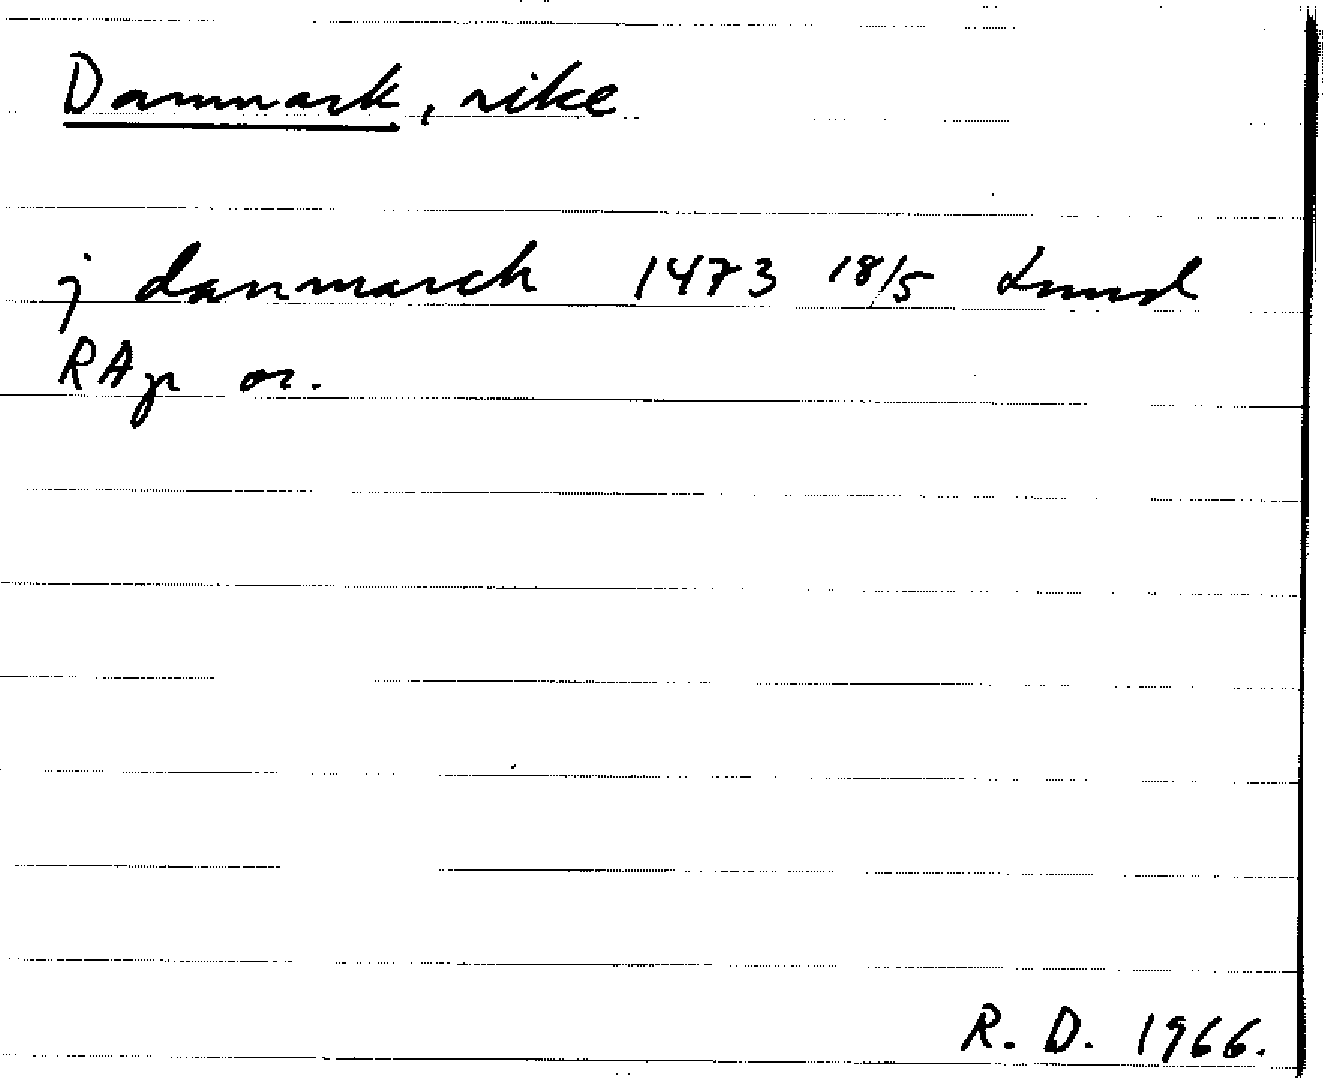 Danmark, rike
j danmarck 1473 18/5 Lund
RAp or.
R. D. 1966.